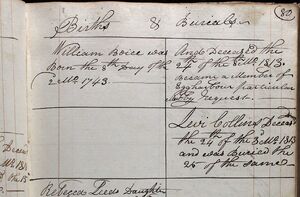 80
Births & Burials
William Boice was
Born the 8th Day of the
2 Mo. 1743.
And Deceased the
2d of the 3d Mo. 1813.
Became a Member of
Eggharbour particular
by request.
Levi Collins Deceas'd
the 24 of the 3d Mo. 1813
and was Buried the
25 of the same
Rebecca Leeds Daughter